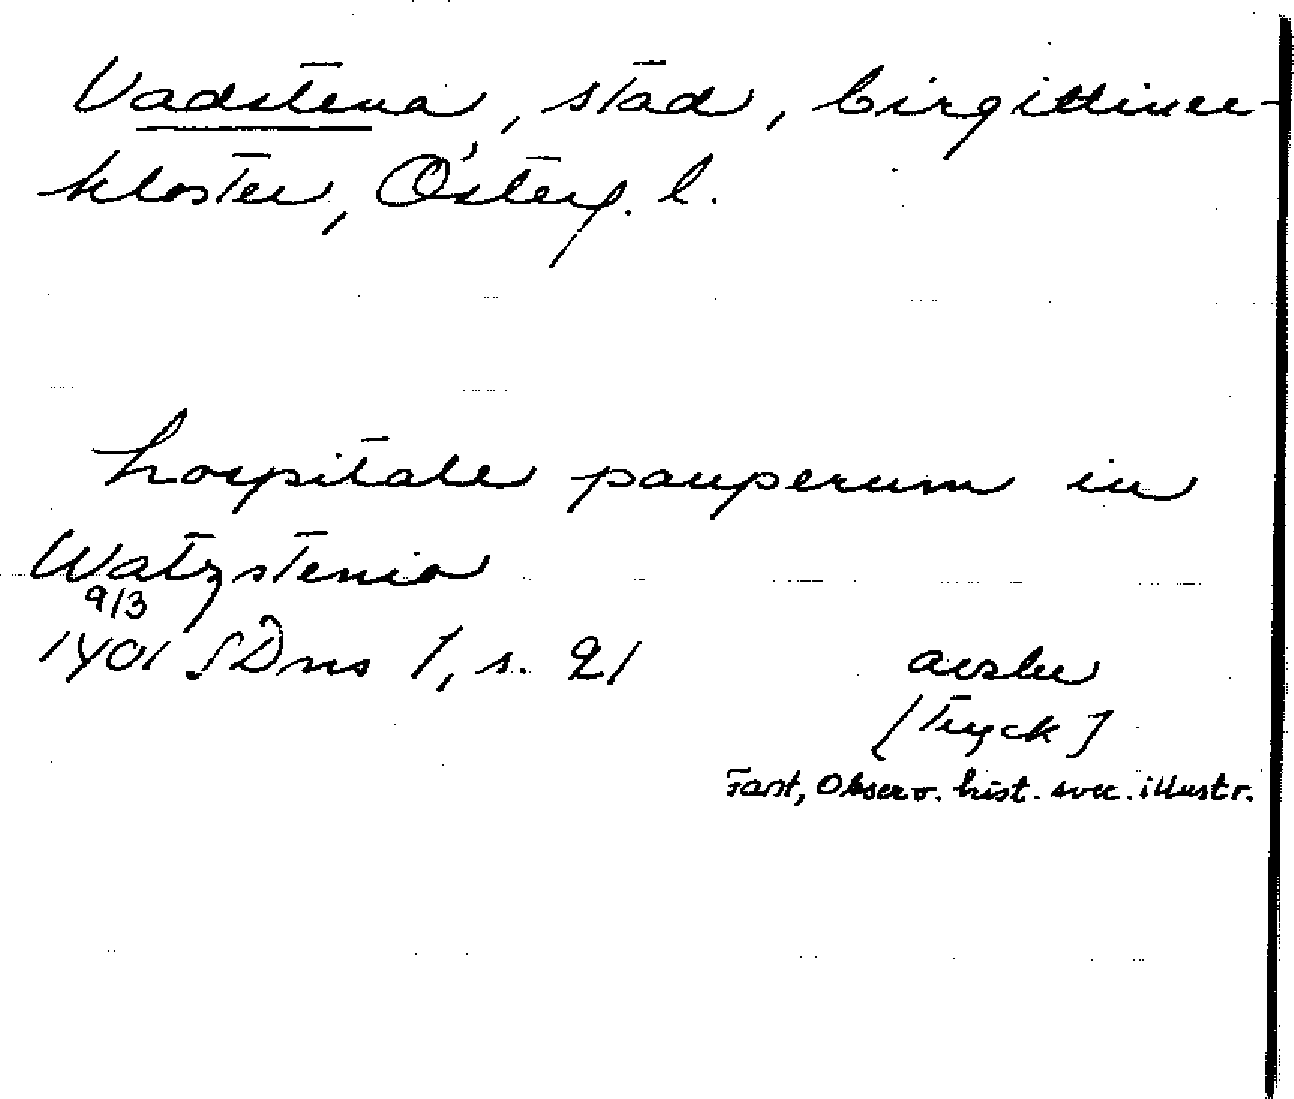 Vadstena, stad, birgittiner-
kloster, Österg. l.
hospitale pauperum in
Watzstenis
9/3
1401 SDns 1, s. 21
avskr
[Tryck]
Fant, Observ. hist. svec. illustr.